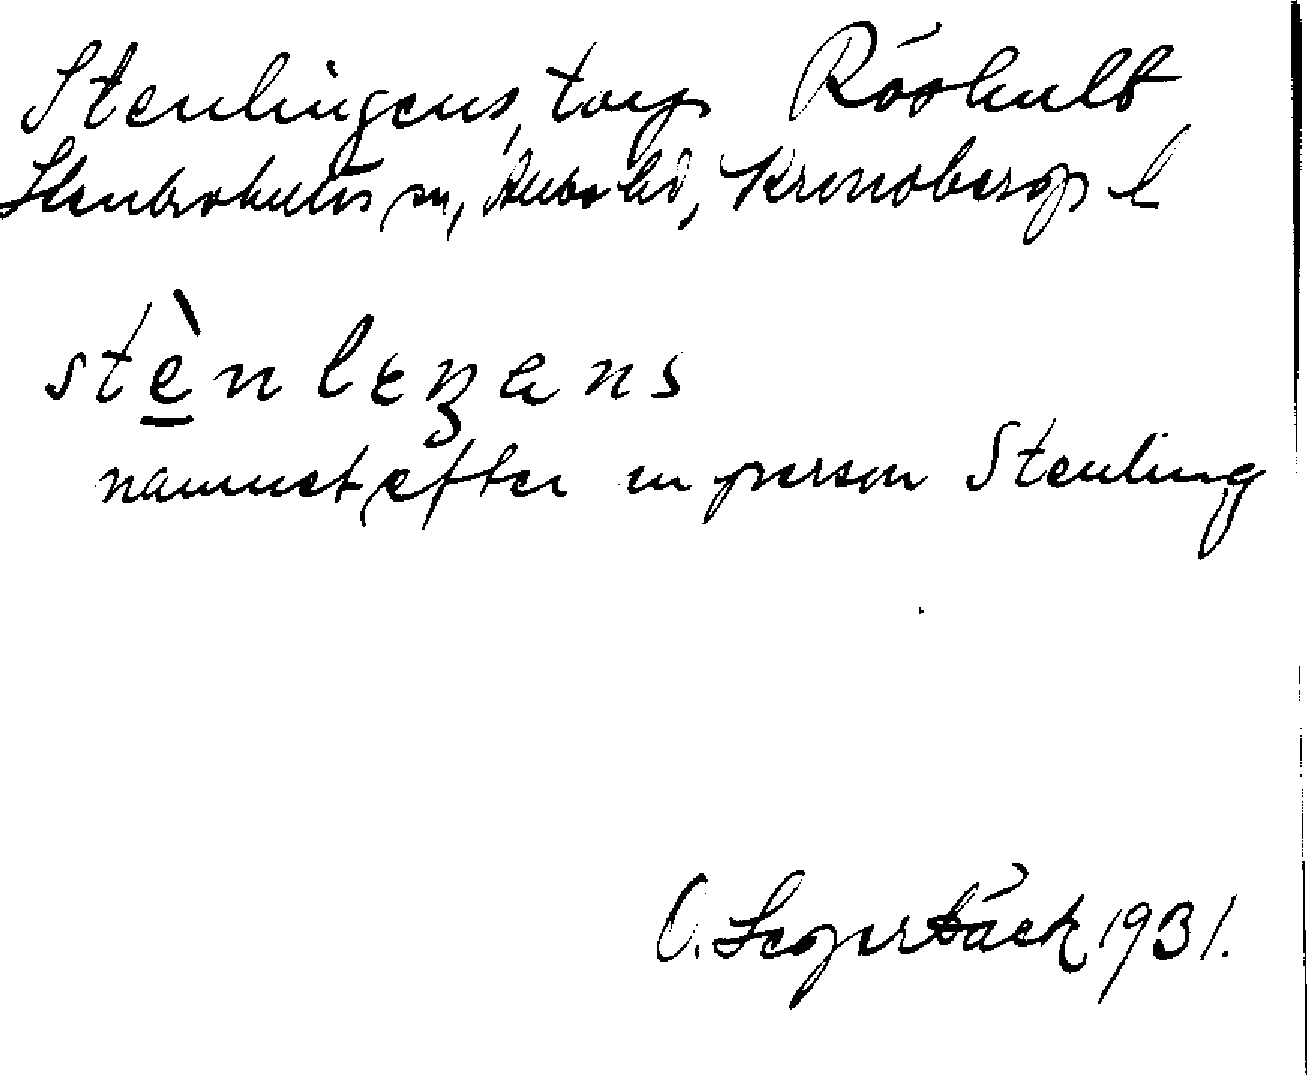 Stenlingens, torp Råshult
Stenbrohults sn, Allbo hd, Kronobergs l
stè̱nleŋens
namnet efter en person Stenling
O. Segerbäck 1931.